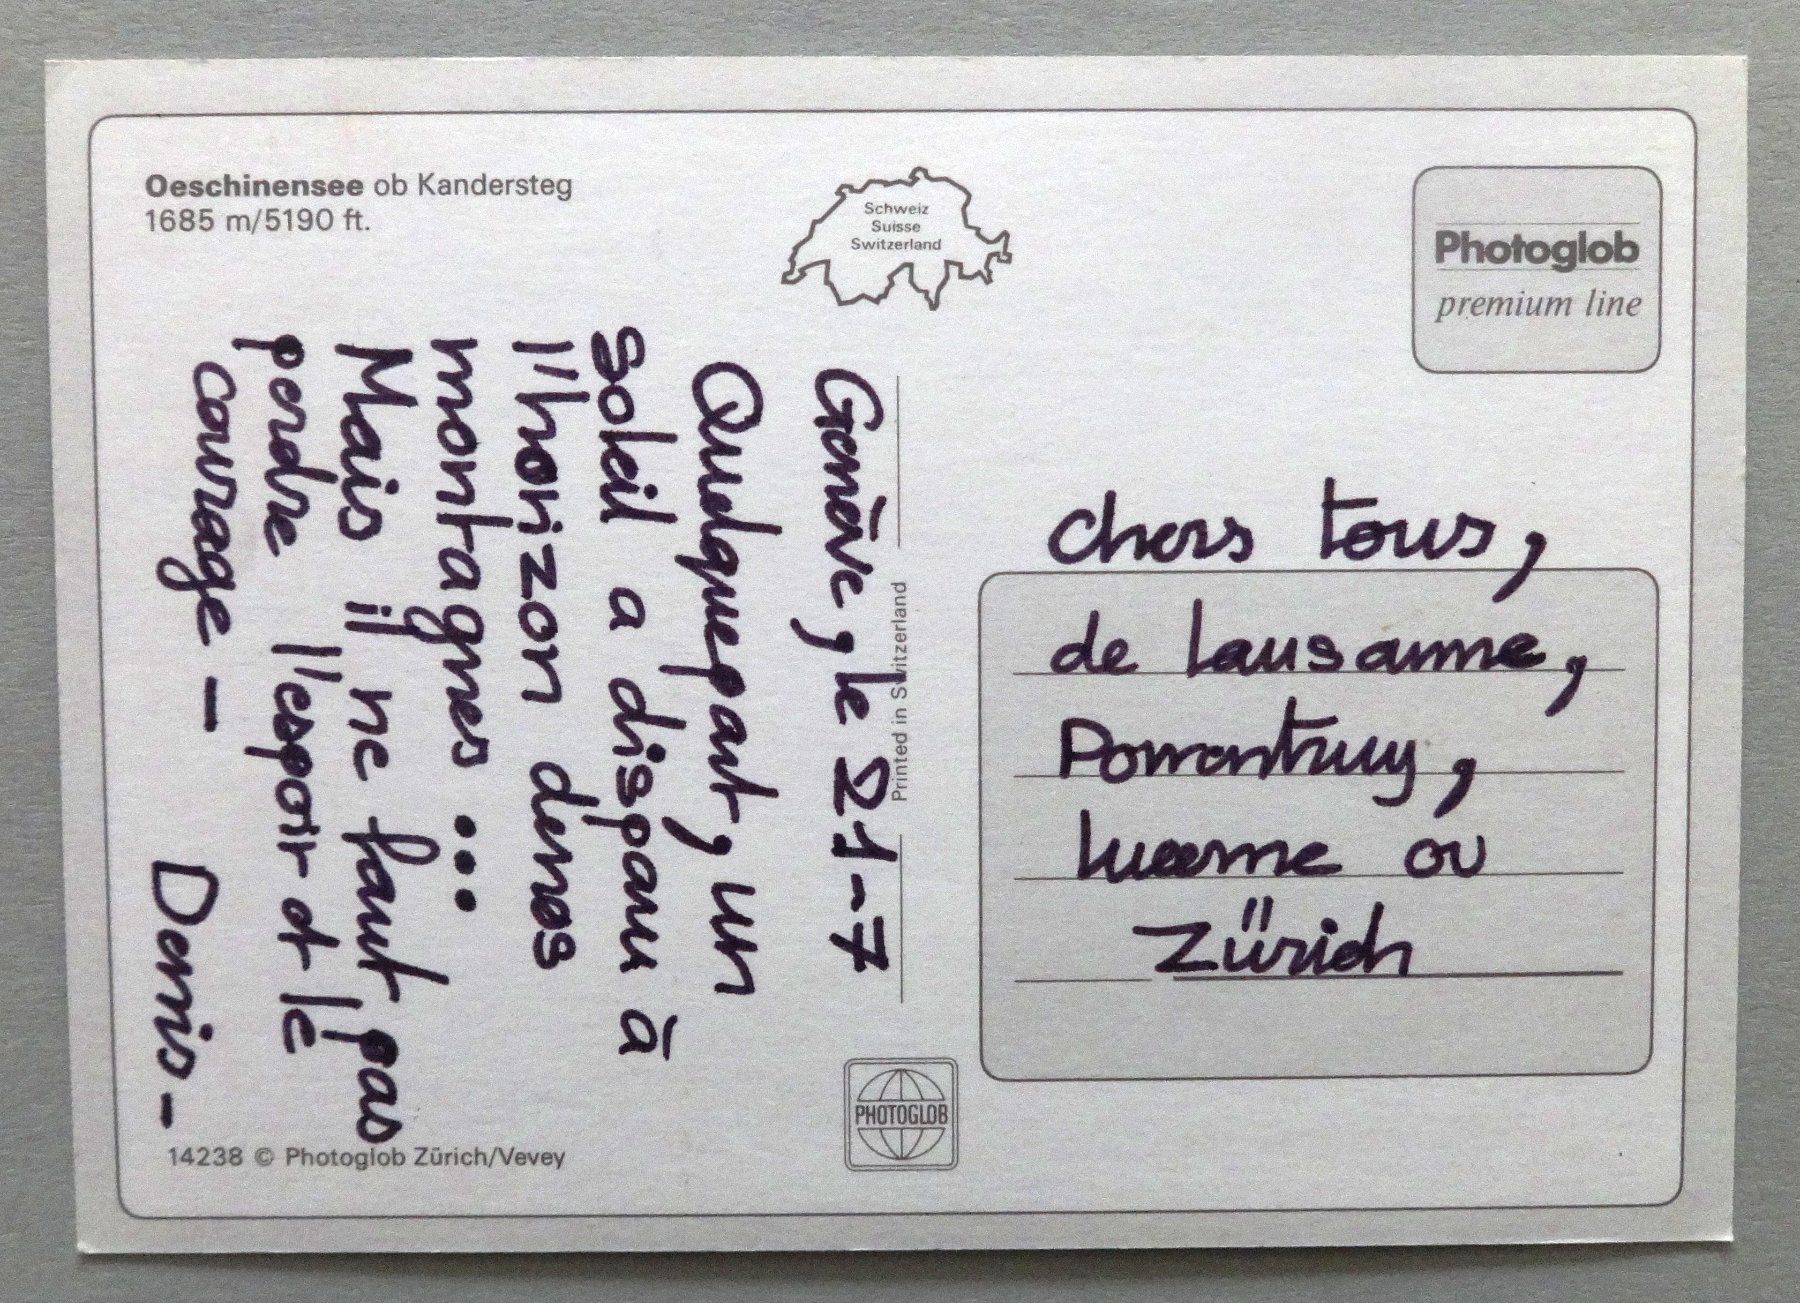 Oeschinensee ob Kandersteg
1685 m/5190 ft.
Schweiz
Suisse
Switzerland
Photoglob
premium line
Genève, le 21-7
Quelquepart, un
soleil a disparu à
l'horizon denes
montagnes...
Mais il ne faut pas
perdre l'espoir et le
courage -
Denis -
Printed in Switzerland
chers tous,
de Lausanne,
Porrentruy,
Lucerne ou
Zürich
PHOTOGLOB
14238 © Photoglob Zürich/Vevey